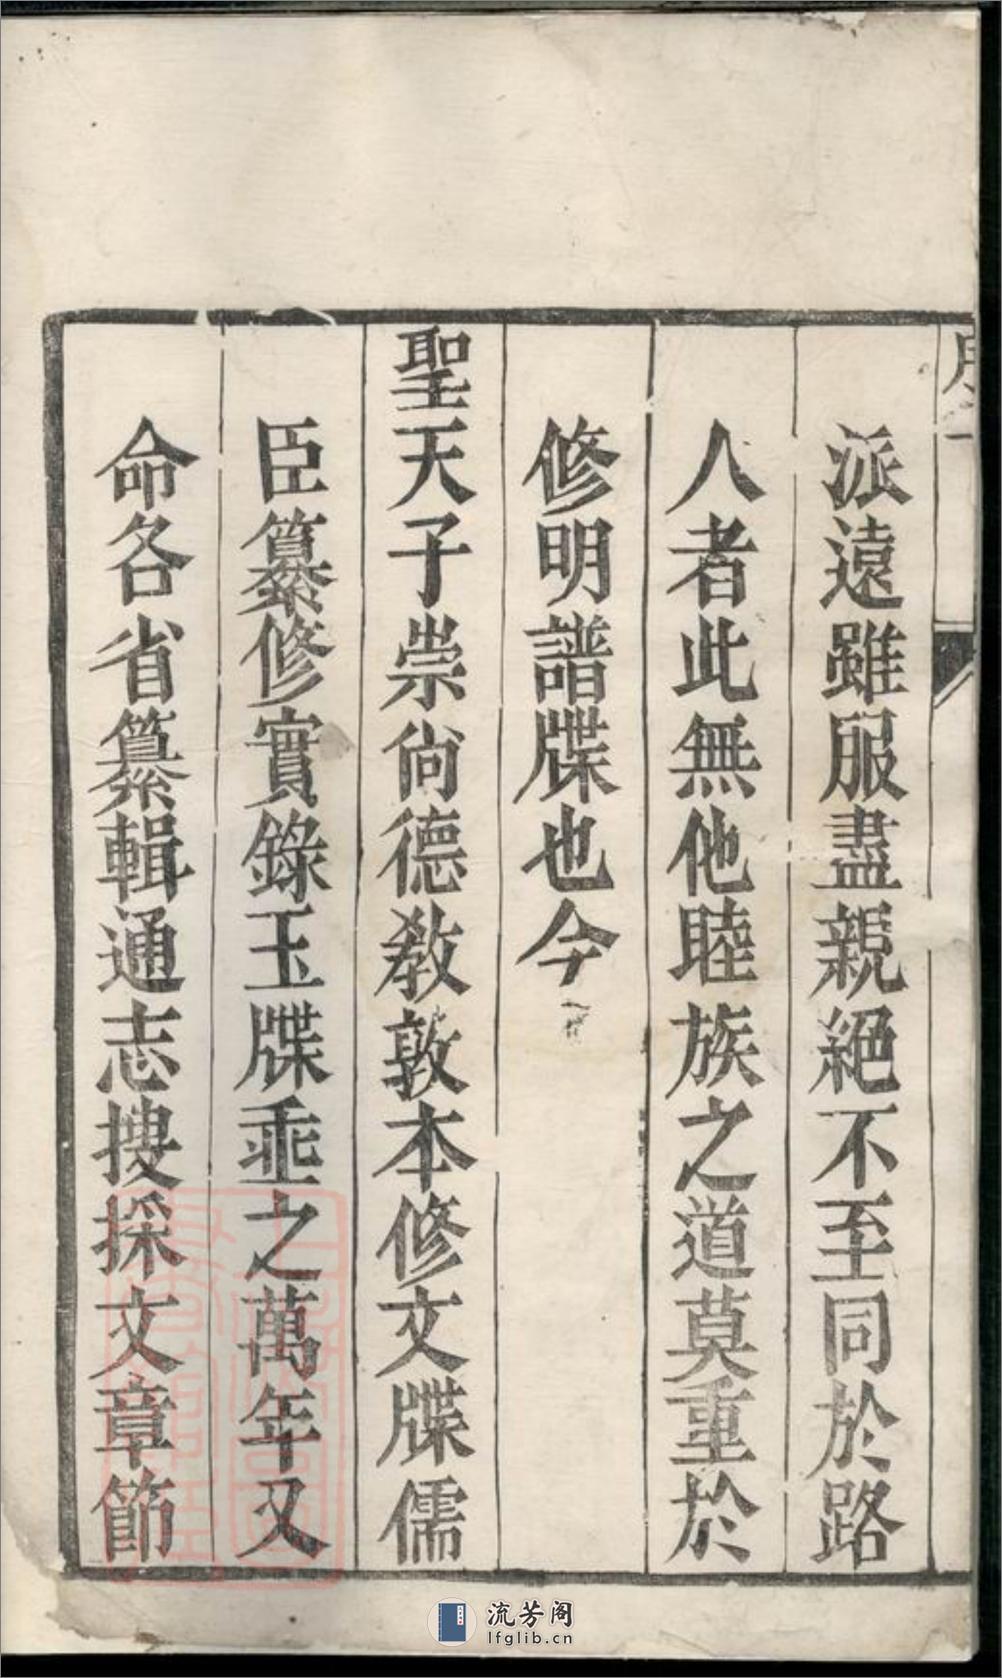 派遠雖服盡親絕不至同於路
人者此無他睦族之道莫重於
修明譜牒也今
聖天子崇尚德敎敦本修文牒儒
臣纂修實錄玉牒垂之萬年又
命各省纂輯通志搜採文章節
流芳阁
lfglib.cn